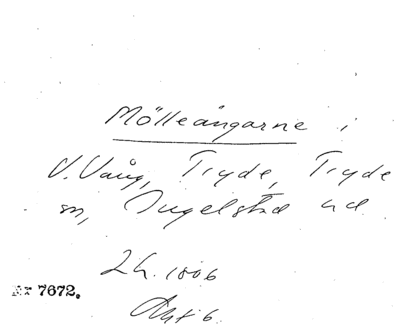 Mölleängarne i
V. Vång, Tryde, Tryde
sn, Ingelstad hd.
2 h. 1006
Ar 7672.
Akt 6.